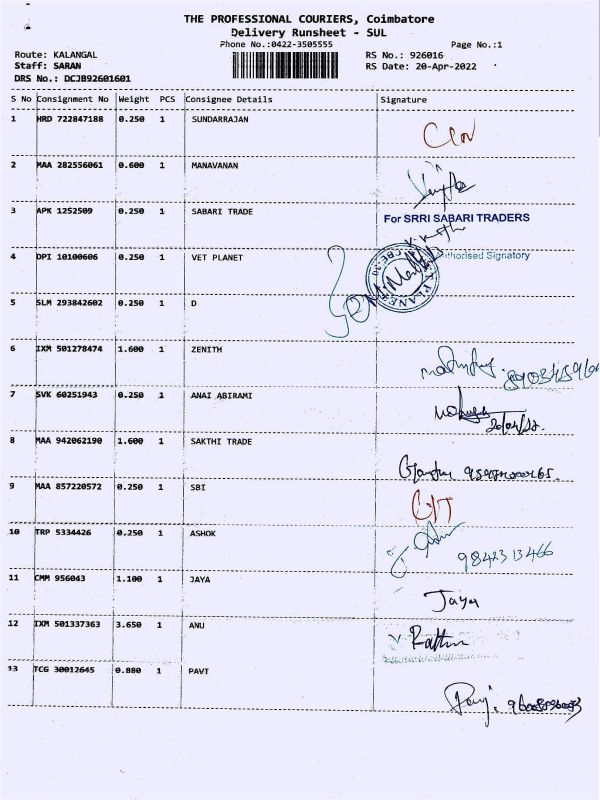 THE PROFESSIONAL COURIERS, Coimbatore
Delivery Runsheet - SUL
Phone No.:0422-3505555
Page No.:1
Route: KALANGAL
RS No.: 926016
Staff: SARAN
RS Date: 20-Apr-2022
DRS No.: DCJB92601601
S No Consignment No Weight PCS Consignee Details Signature
1 HRD 722847188 0.250 1 SUNDARRAJAN
2 MAA 282556061 0.600 1 MANAVANAN
3 APK 1252509 0.250 1 SABARI TRADE
For SRRI SABARI TRADERS
Authorised Signatory
4 DPI 10100606 0.250 1 VET PLANET
5 SLM 293842602 0.250 1 D
6 IXM 501278474 1.600 1 ZENITH
7 SVK 60251943 0.250 1 ANAI ABIRAMI
8 MAA 942062190 1.600 1 SAKTHI TRADE
9 MAA 857220572 0.250 1 SBI
10 TRP 5334426 0.250 1 ASHOK 9842313466
11 CMM 956043 1.100 1 JAYA Jaya
12 IXM 501337363 3.650 1 ANU
13 TCG 30012645 0.880 1 PAVT